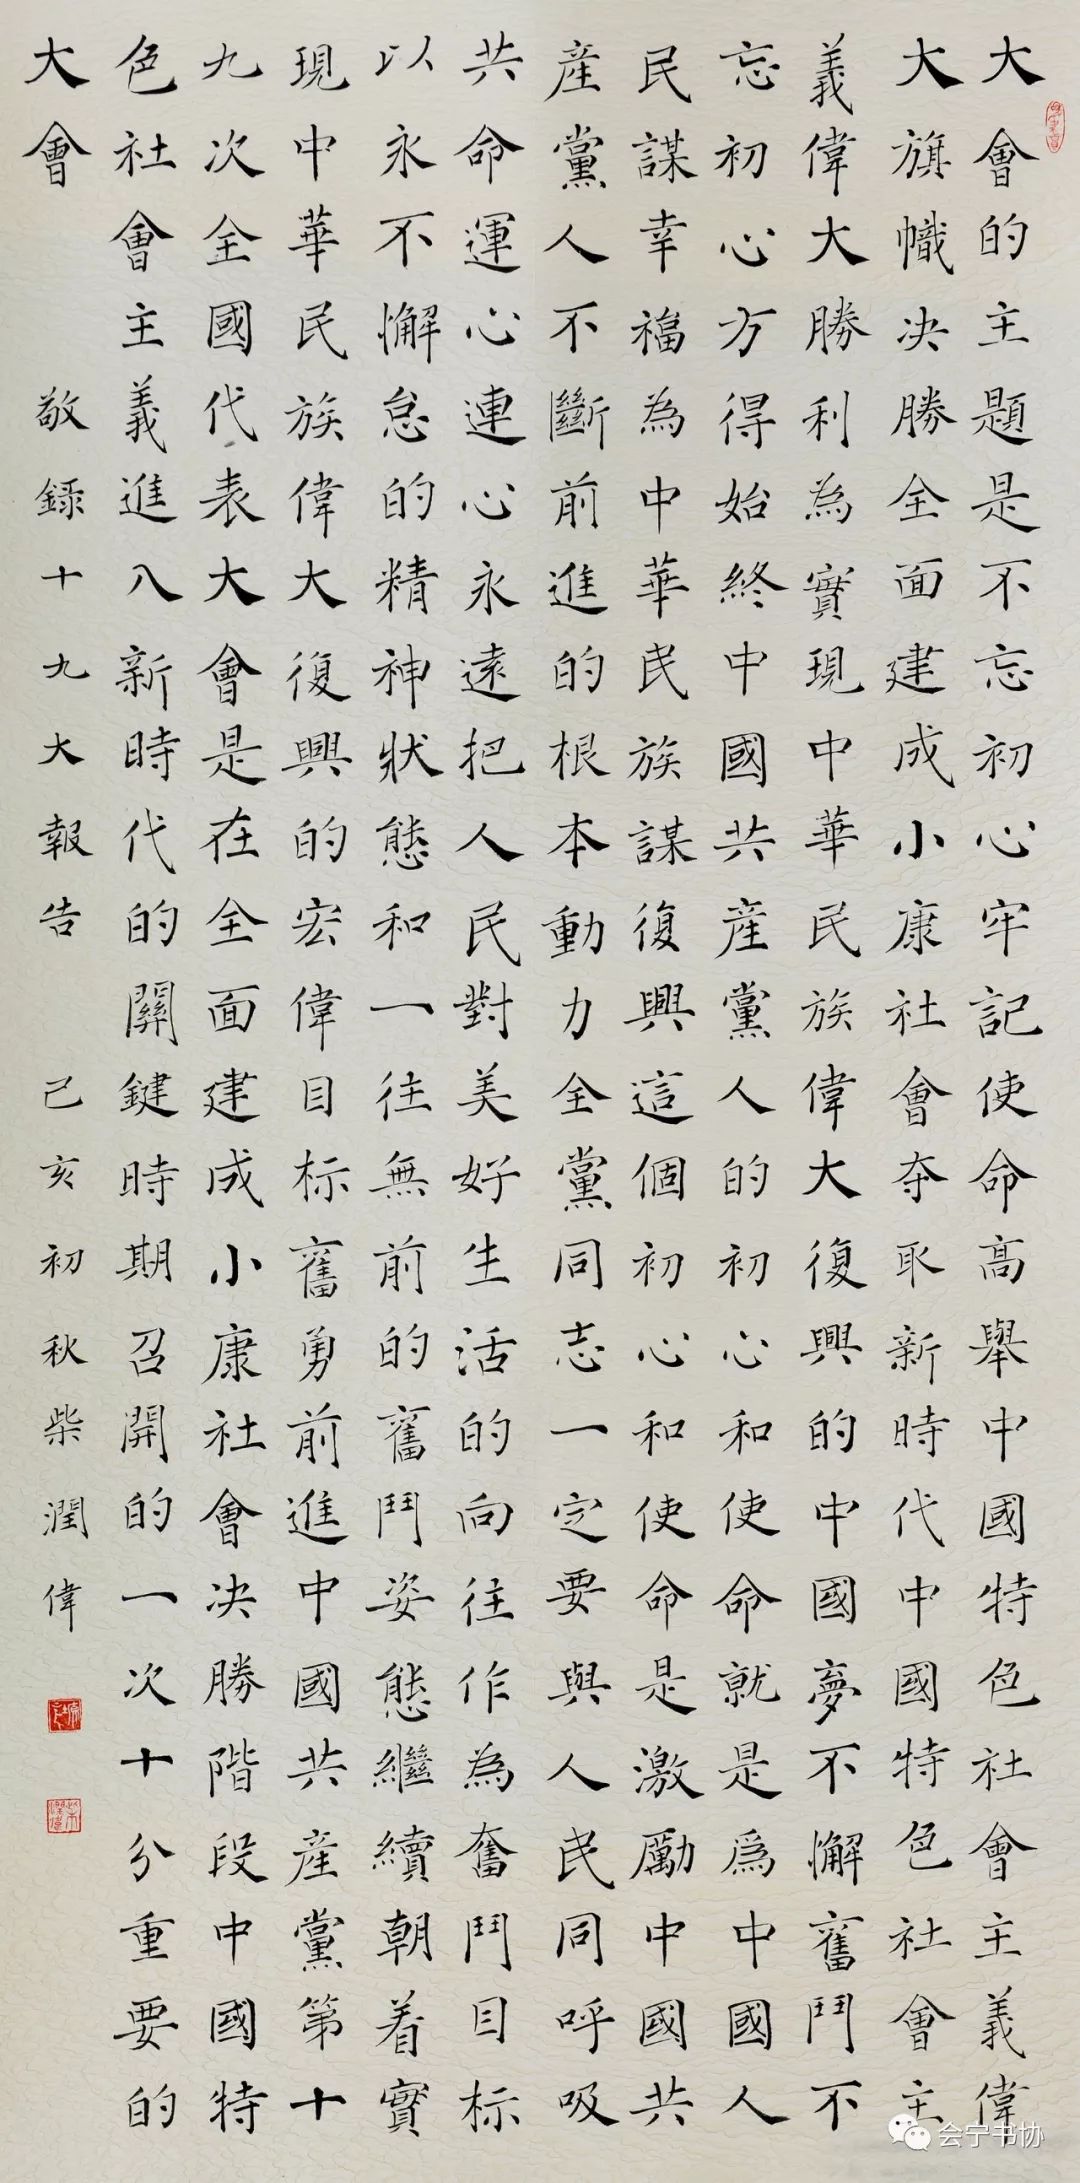 大會的主題是不忘初心牢記使命高舉中國特色社會主義偉
大大旗幟决勝全面建成小康社會夺取新時代中國特色社會主
義偉大勝利為實現中華民族偉大復興的中國夢不懈舊鬥不
忘初心方得始終中國共産黨人的初心和使命就是爲中國人
民謀幸福為中華民族謀復興這個初心和使命是激勵中國共
産黨人不斷前進的根本動力全黨同志一定要與人民同呼吸
共命運心連心永遠把人民對美好生活的向往作為奮鬥目标
以永不懈怠的精神狀態和一往無前的舊鬥姿態繼續朝着實
現中華民族偉大復興的宏偉目标舊勇前進中國共産黨第十
九次全國代表大會是在全面建成小康社會决勝階段中國特
色社會主義進入新時代的關鍵時期召開的一次十分重要的
大會 敬録十九大報告 己亥初秋柴潤偉
会宁书协